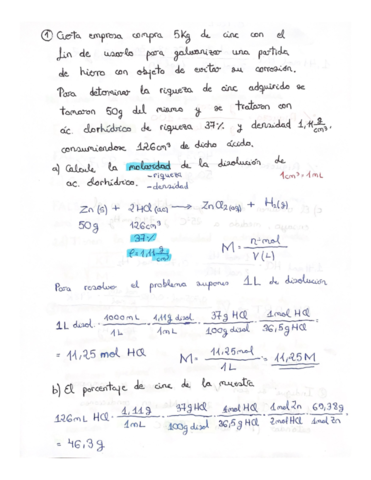 ① Cierta empresa compra 5Kg de cinc con el
fin de usarlo para galvanizar una partida
de hierro con objeto de evitar su corrosión.
Para determinar la riqueza de cinc adquirido se
tomaron 50g del mismo y se trataron con
ác. clorhídrico de riqueza 37% y densidad 1,11 g/cm³,
consumiéndose 126cm³ de dicho ácido.
a) Calcule la molaridad de la disolución de
ac. clorhídrico. -riqueza -densidad 1cm³=1mL
Zn (s) + 2HCl (ac) → ZnCl₂(aq) + H₂(g)
50g 126cm³
37%
ρ=1,11 g/cm³
M = n-mol / V (L)
Para resolver el problema supones 1L de disolución
1L disol · 1000mL/1L · 1,11g disol/1mL · 37g HCl/100g disol · 1mol HCl/36,5g HCl
= 11,25 mol HCl M = 11,25mol/1L = 11,25M
b) El porcentaje de cinc de la muestra
126mL HCl · 1,11g/1mL · 37g HCl/100g disol · 1mol HCl/36,5g HCl · 1mol Zn/2mol HCl · 65,38g/1mol Zn
= 46,3g